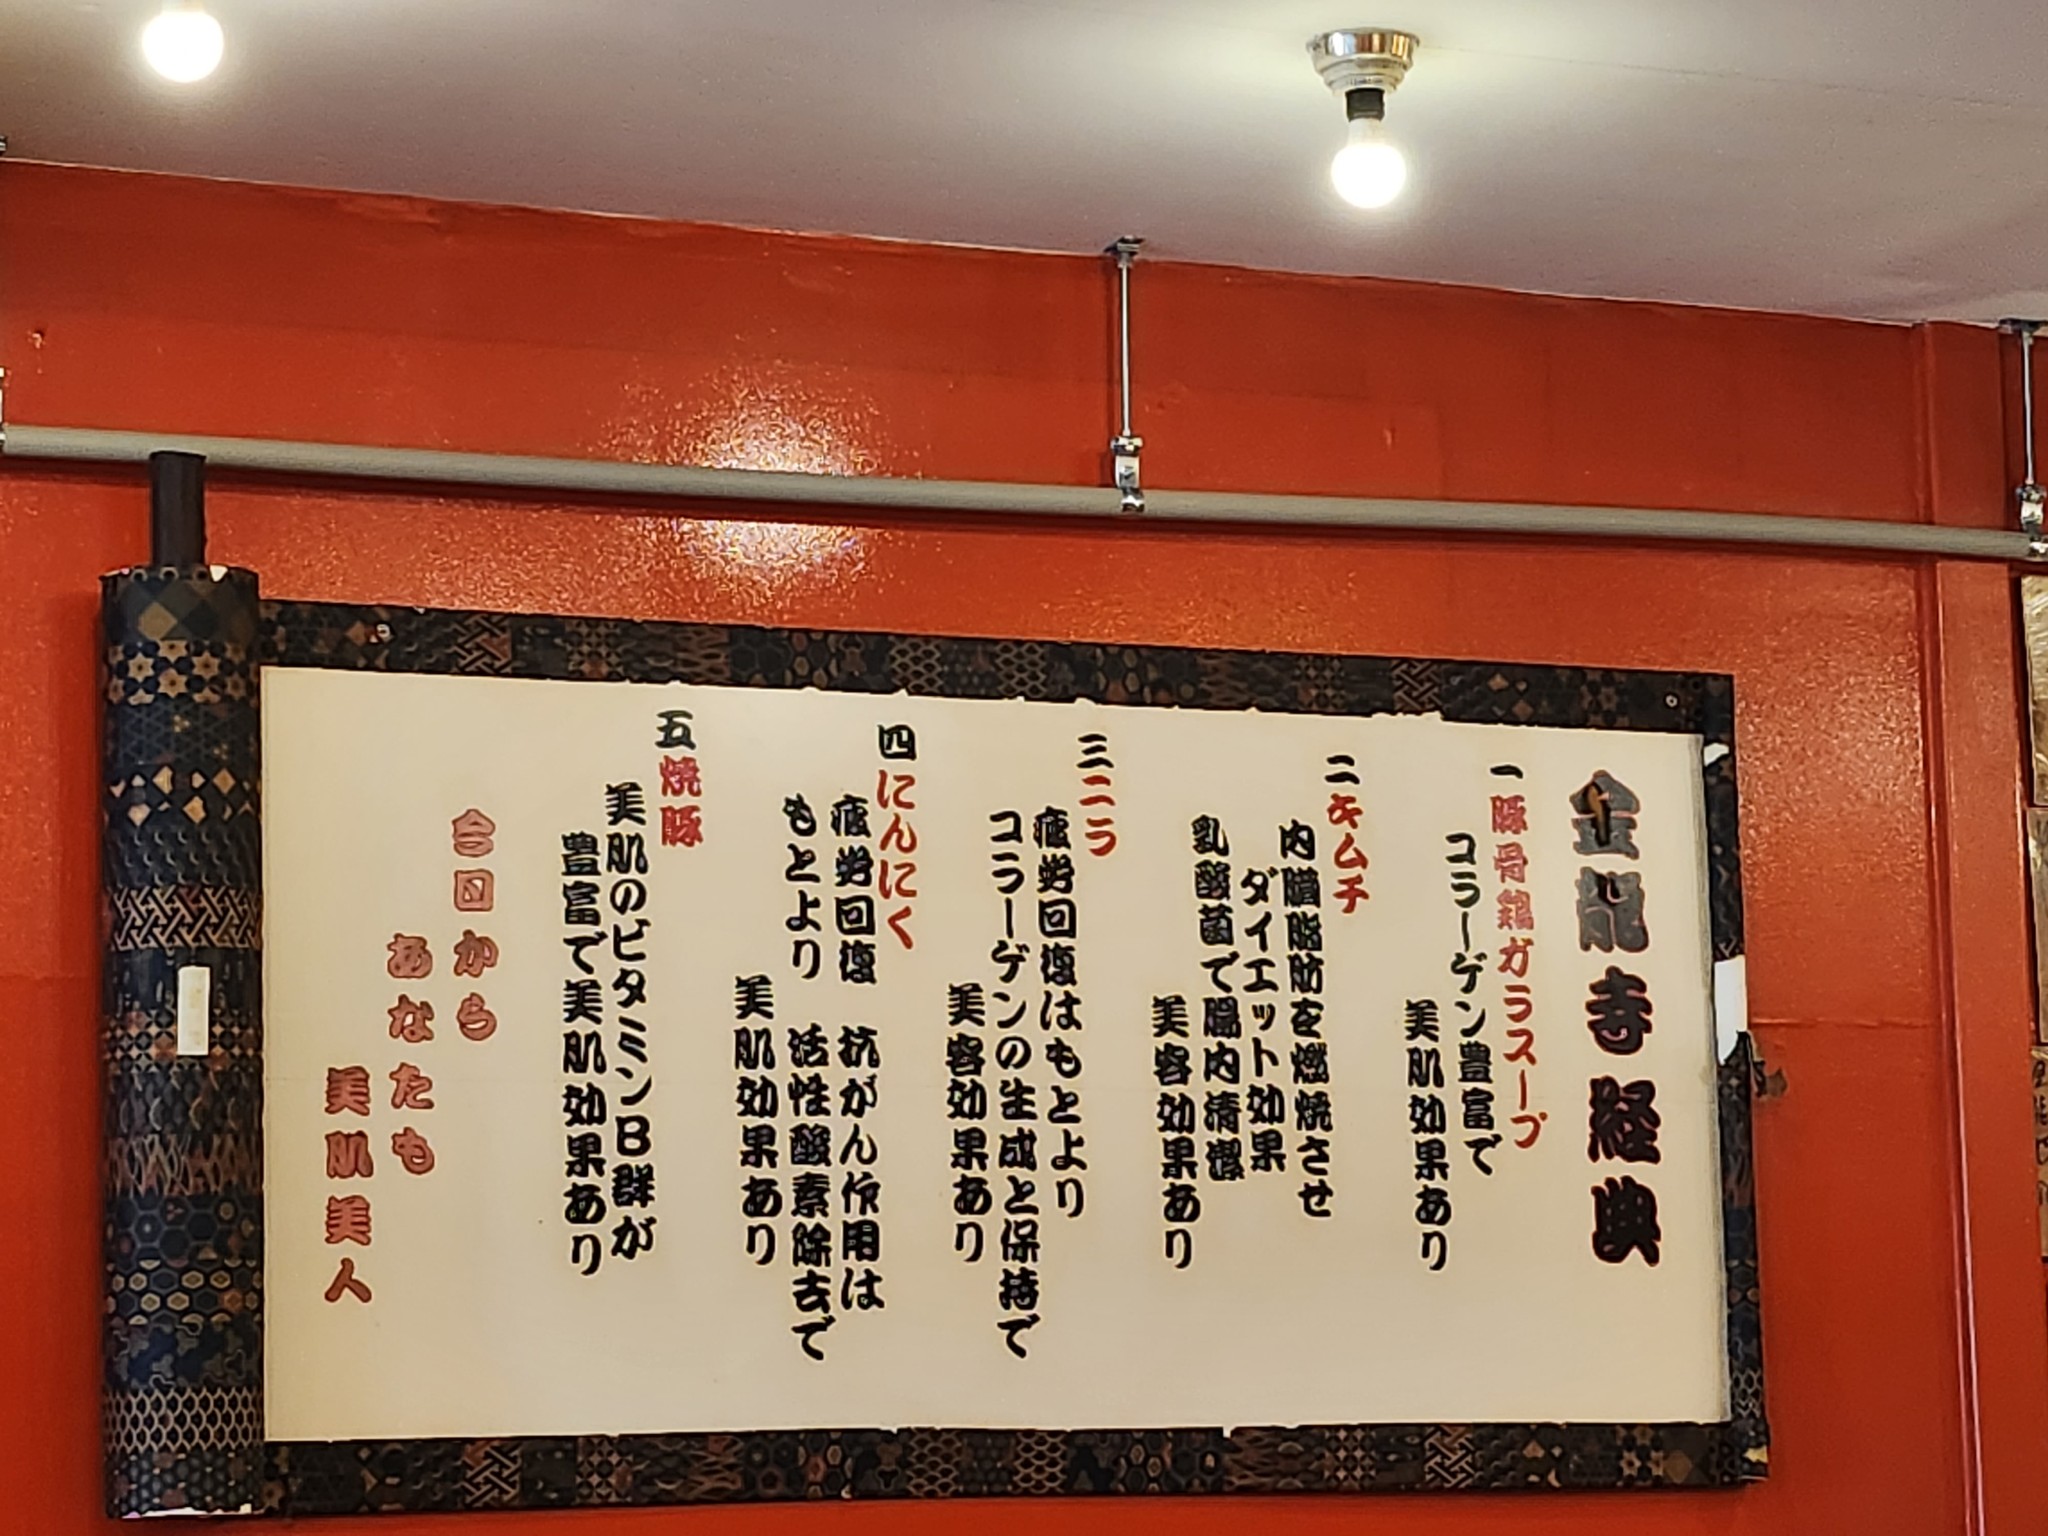 金龍寺経典
一豚骨鶏ガラスープ
コラーゲン豊富で
美肌効果あり
二キムチ
内臓脂肪を燃焼させ
ダイエット効果
乳酸菌で腸内清潔
美容効果あり
三ニラ
疲労回復はもとより
コラーゲンの生成と保持で
美容効果あり
四にんにく
疲労回復 抗がん作用は
もとより 活性酸素除去で
美肌効果あり
五焼豚
美肌のビタミンB群が
豊富で美肌効果あり
今日から
あなたも
美肌美人